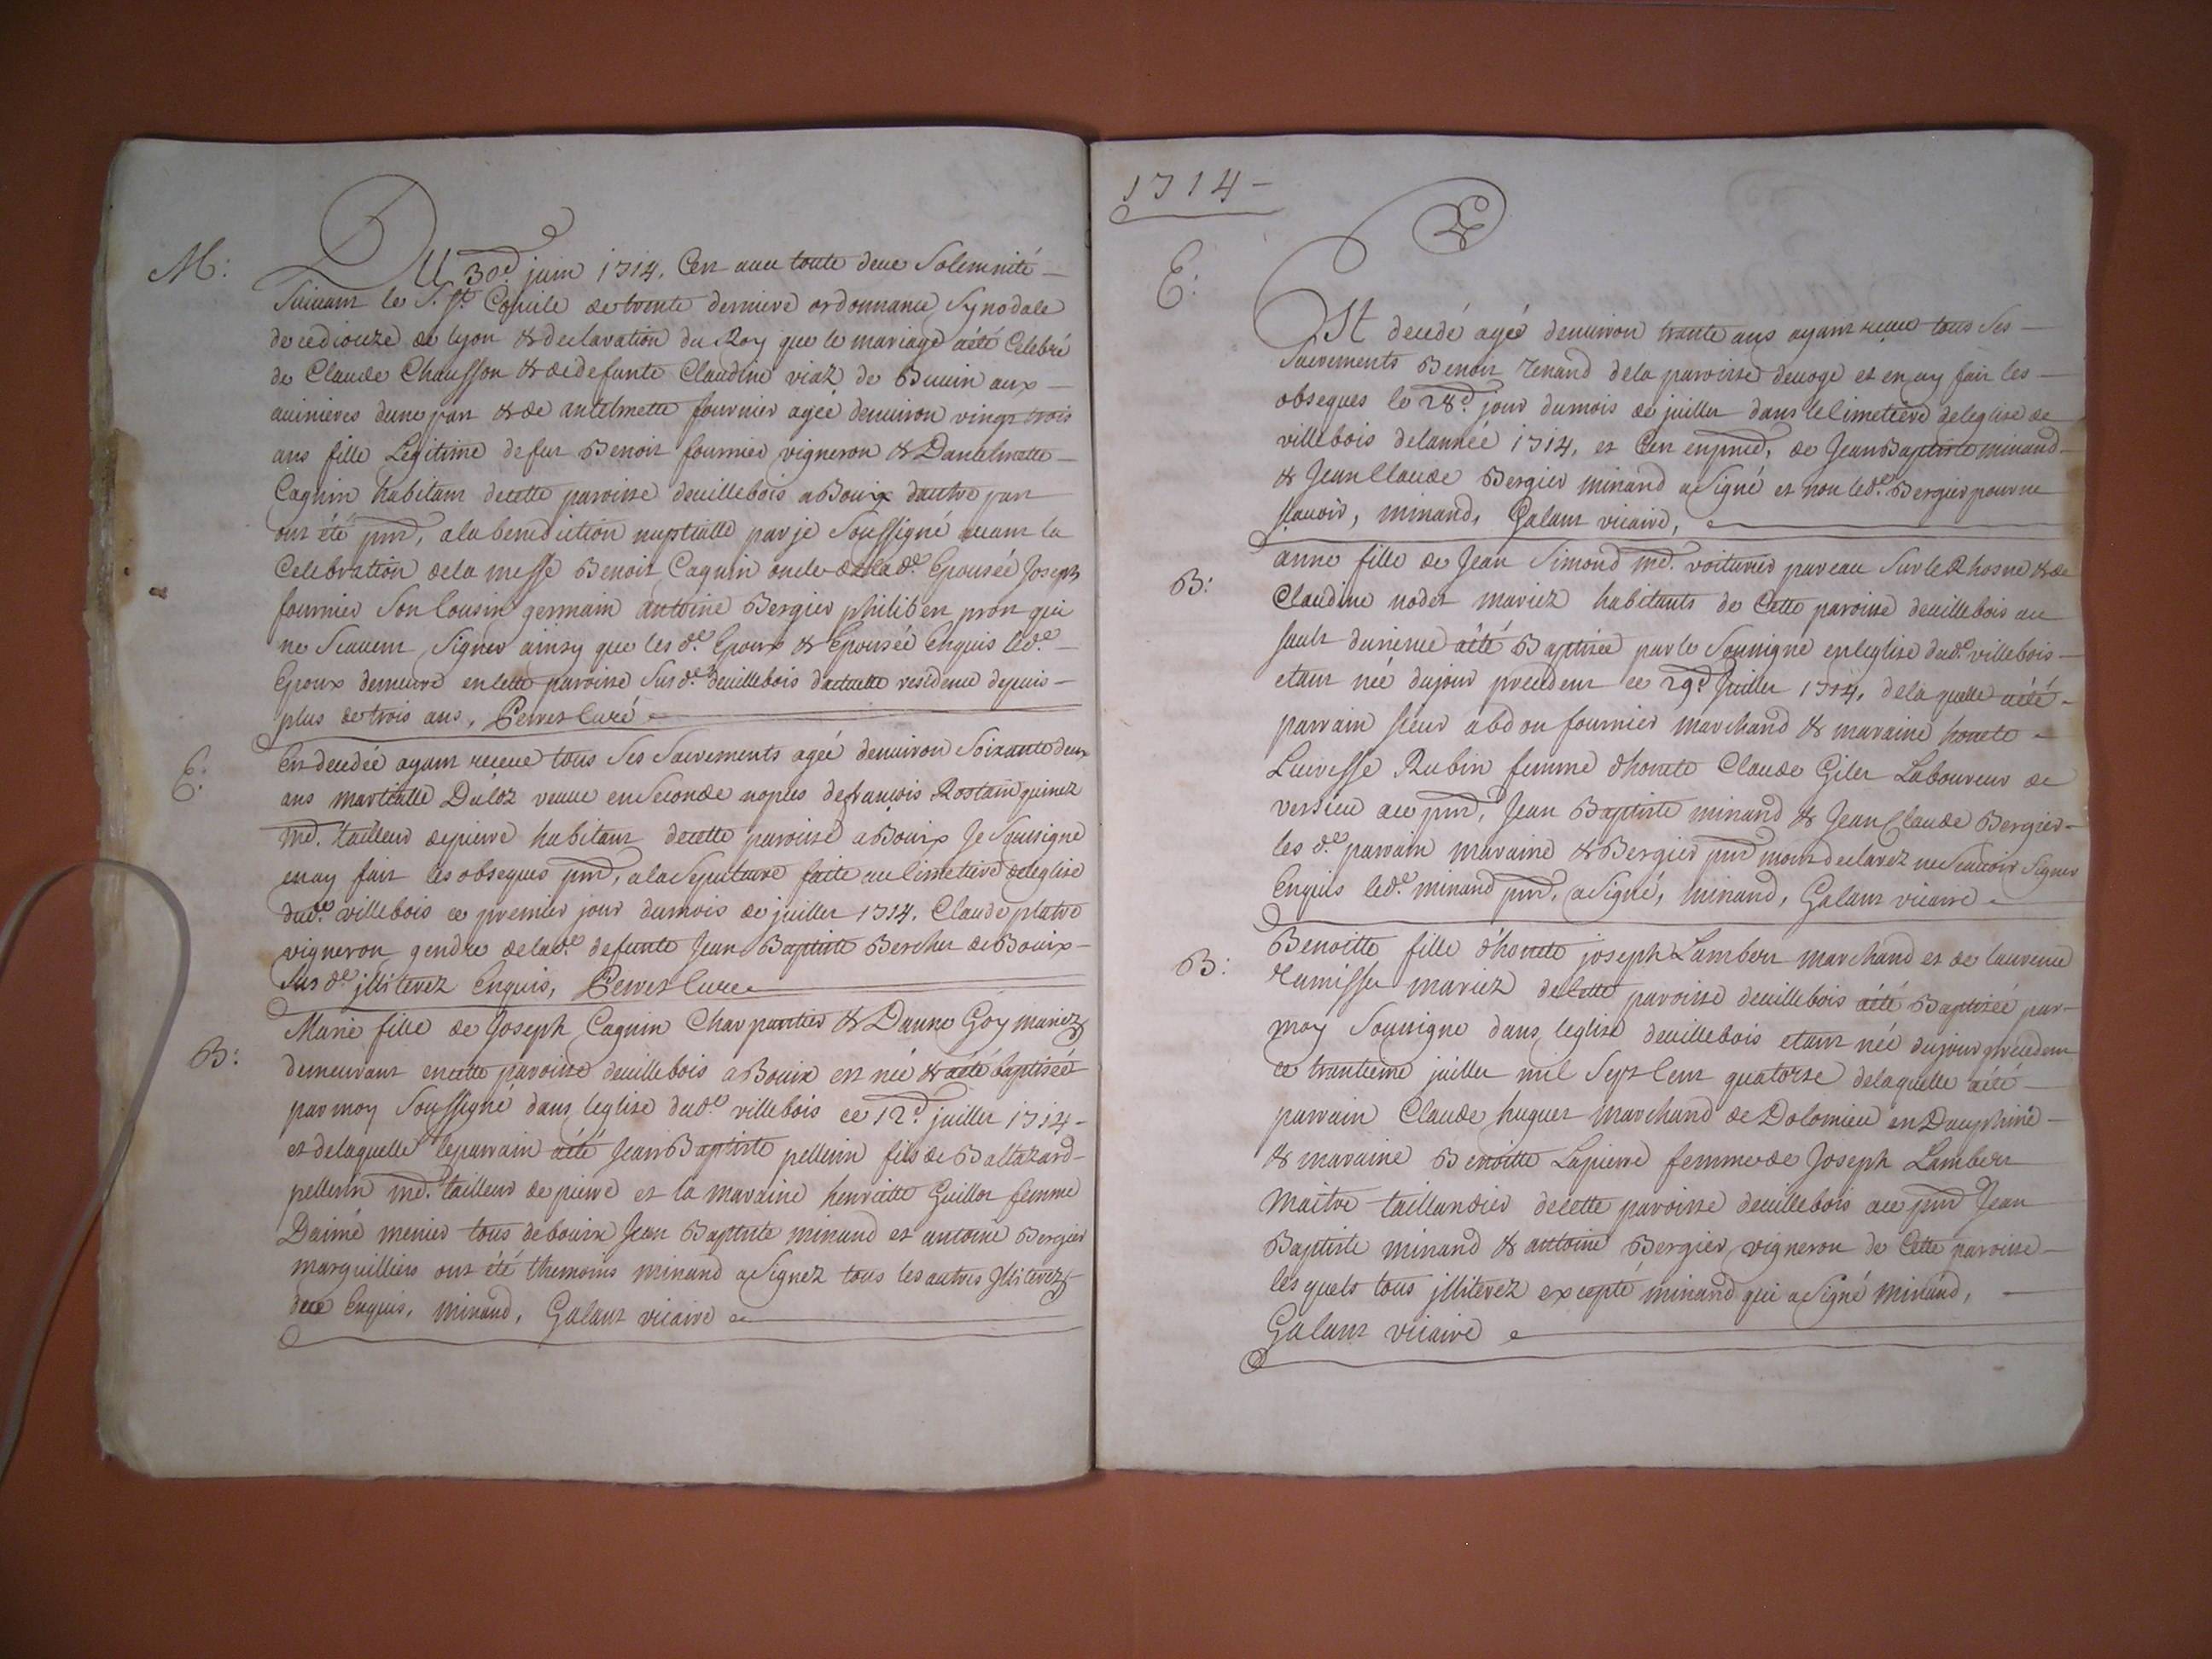 M:
DU 30d juin 1714. C'est avec toute deue Solemnité
Suivant le S. st. Concile de trente derniere ordonnance Synodale
de ce diocize de lyon & declaration du Roy que le mariage aété Celebré
de Claude Chausson & de defunte Claudine viaz de aux
avinieres dune part & de antelmette fournier agée denviron vingt trois
ans fille Legitime de fut Benoit fournier vigneron & Dantelmette
Caquin habitant decette paroisse devillebois a Bouix dautre part
ont été pnt, ala benediction nuptialle par je Soussigné avant la
Celebration dela messe Benoit Caquin oncle de lade Epousée Joseph
fournier Son Cousin germain antoine Bergier philibert pron qui
ne Scavent Signer ainsy que les de Epoux & Epousée Enquis lede
Epoux demeure en cette paroisse Susde devillebois dactuelle residence depuis
plus de trois ans, Perret Curé
E:
Est decedée ayant receue tous Ses Sacrements agée denviron Soixante deux
ans martialle Duloz veuve en Seconde nopces de francois Rostain quinez
md. tailleur de pierre habitant decette paroisse a Bouix Je Soussigne
en ay fait les obseques pnt, ala Sepulture faite au Cimetiere deleglise
dude villebois ce premier jour dumois de juillet 1714. Claude platre
vigneron gendre delade defunte Jean Baptiste Bercher de Bouix
Susde jlliterez Enquis, Perret Cure
B:
Marie fille de Joseph Caquin Charpantier & Danne Goy mariez
demeurant en cette paroisse devillebois a Bouix est née & aété baptisée
par moy Soussigné dans leglise dude villebois ce 12d juillet 1714
et delaquelle leparrain aété Jean Baptiste pellerin fils de Baltazard
pellerin md. tailleur de pierre et la maraine henriette Guillot femme
Daimé menier tous de bouix Jean Baptiste minand et antoine Bergier
marguilliers ont été themoins minand a Signez tous les autres jlliterez
dece Enquis, minand, Galant vicaire
1714
E:
ESt decedé agé denviron trante ans ayant receue tous Ses
Sacrements Benoit renand dela paroisse devoge et en ay fait les
obseques le 28d. jour dumois de juillet dans le Cimetiere deleglise de
villebois delannée 1714. et C'est enpnce, de Jean Baptiste minand
& Jean Claude Bergier minand a Signé et non lede Bergier pour ne
scavoir, minand, Galant vicaire,
B:
anne fille de Jean Simond md. voiturier par eau Sur le Rhosne & de
Claudine nodet mariez habitants de Cette paroisse devillebois au
Sault aété Baptisée par le Soussigne enleglise dude villebois
etant née dujour precedent ce 29d Juillet 1714, dela quelle aété
parrain sieur abdon fournier marchand & maraine honete
Lucresse Rubin femme dhonete Claude Gilet Laboureur de
versieu avec pnt, Jean Baptiste minand & Jean Claude Bergier
les de parrain maraine & Bergier pnt mont declarez ne Scavoir Signer
Enquis lede minand pnt, a Signé, minand, Galant vicaire
B:
Benoitte fille d'honete joseph Lambert marchand et de laurence
mariez de Cette paroisse devillebois aété Baptizée par
moy Soussigne dans leglise devillebois etant née dujour precedent
ce trantieme juillet mil Sept Cent quatorse delaquelle aété
parrain Claude huguet marchand de Dolomieu en Dauphiné
& maraine Benoitte Lapierre femme de Joseph Lambert
maitre taillandier decette paroisse devillebois avec pnt Jean
Baptiste minand & antoine Bergier vigneron de Cette paroisse
les quels tous jlliterez excepté minand qui a Signé minand,
Galant vicaire